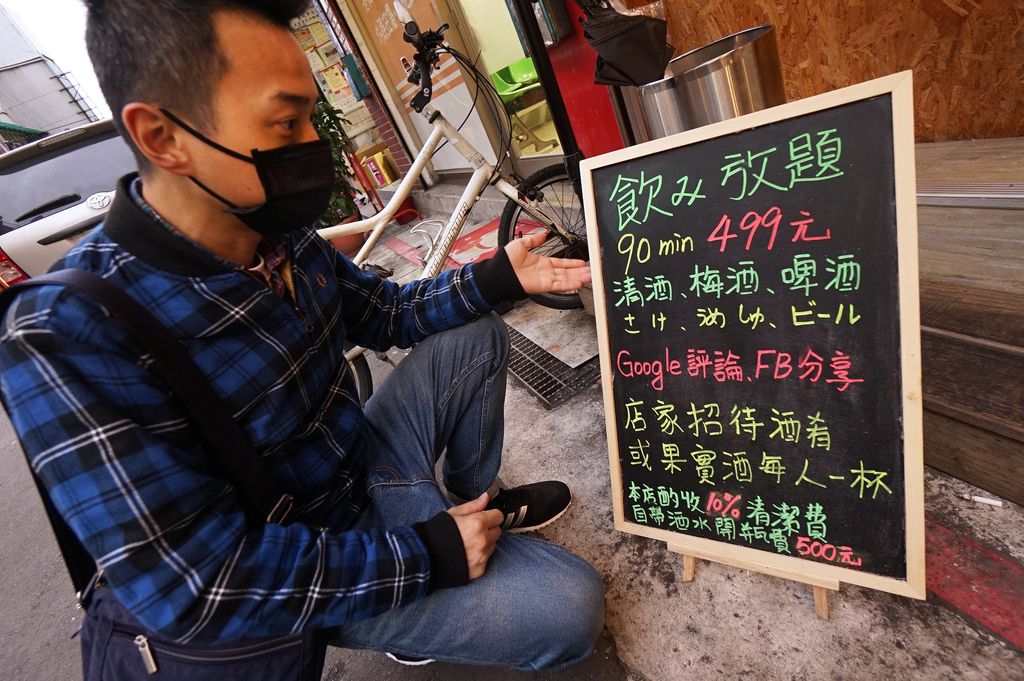 飲み放題
90 min 499元
清酒、梅酒、啤酒
さけ、うめしゅ、ビール
Google評論、FB分享
店家招待酒肴
或果實酒每人一杯
本店酌收10%清潔費
自帶酒水開瓶費500元